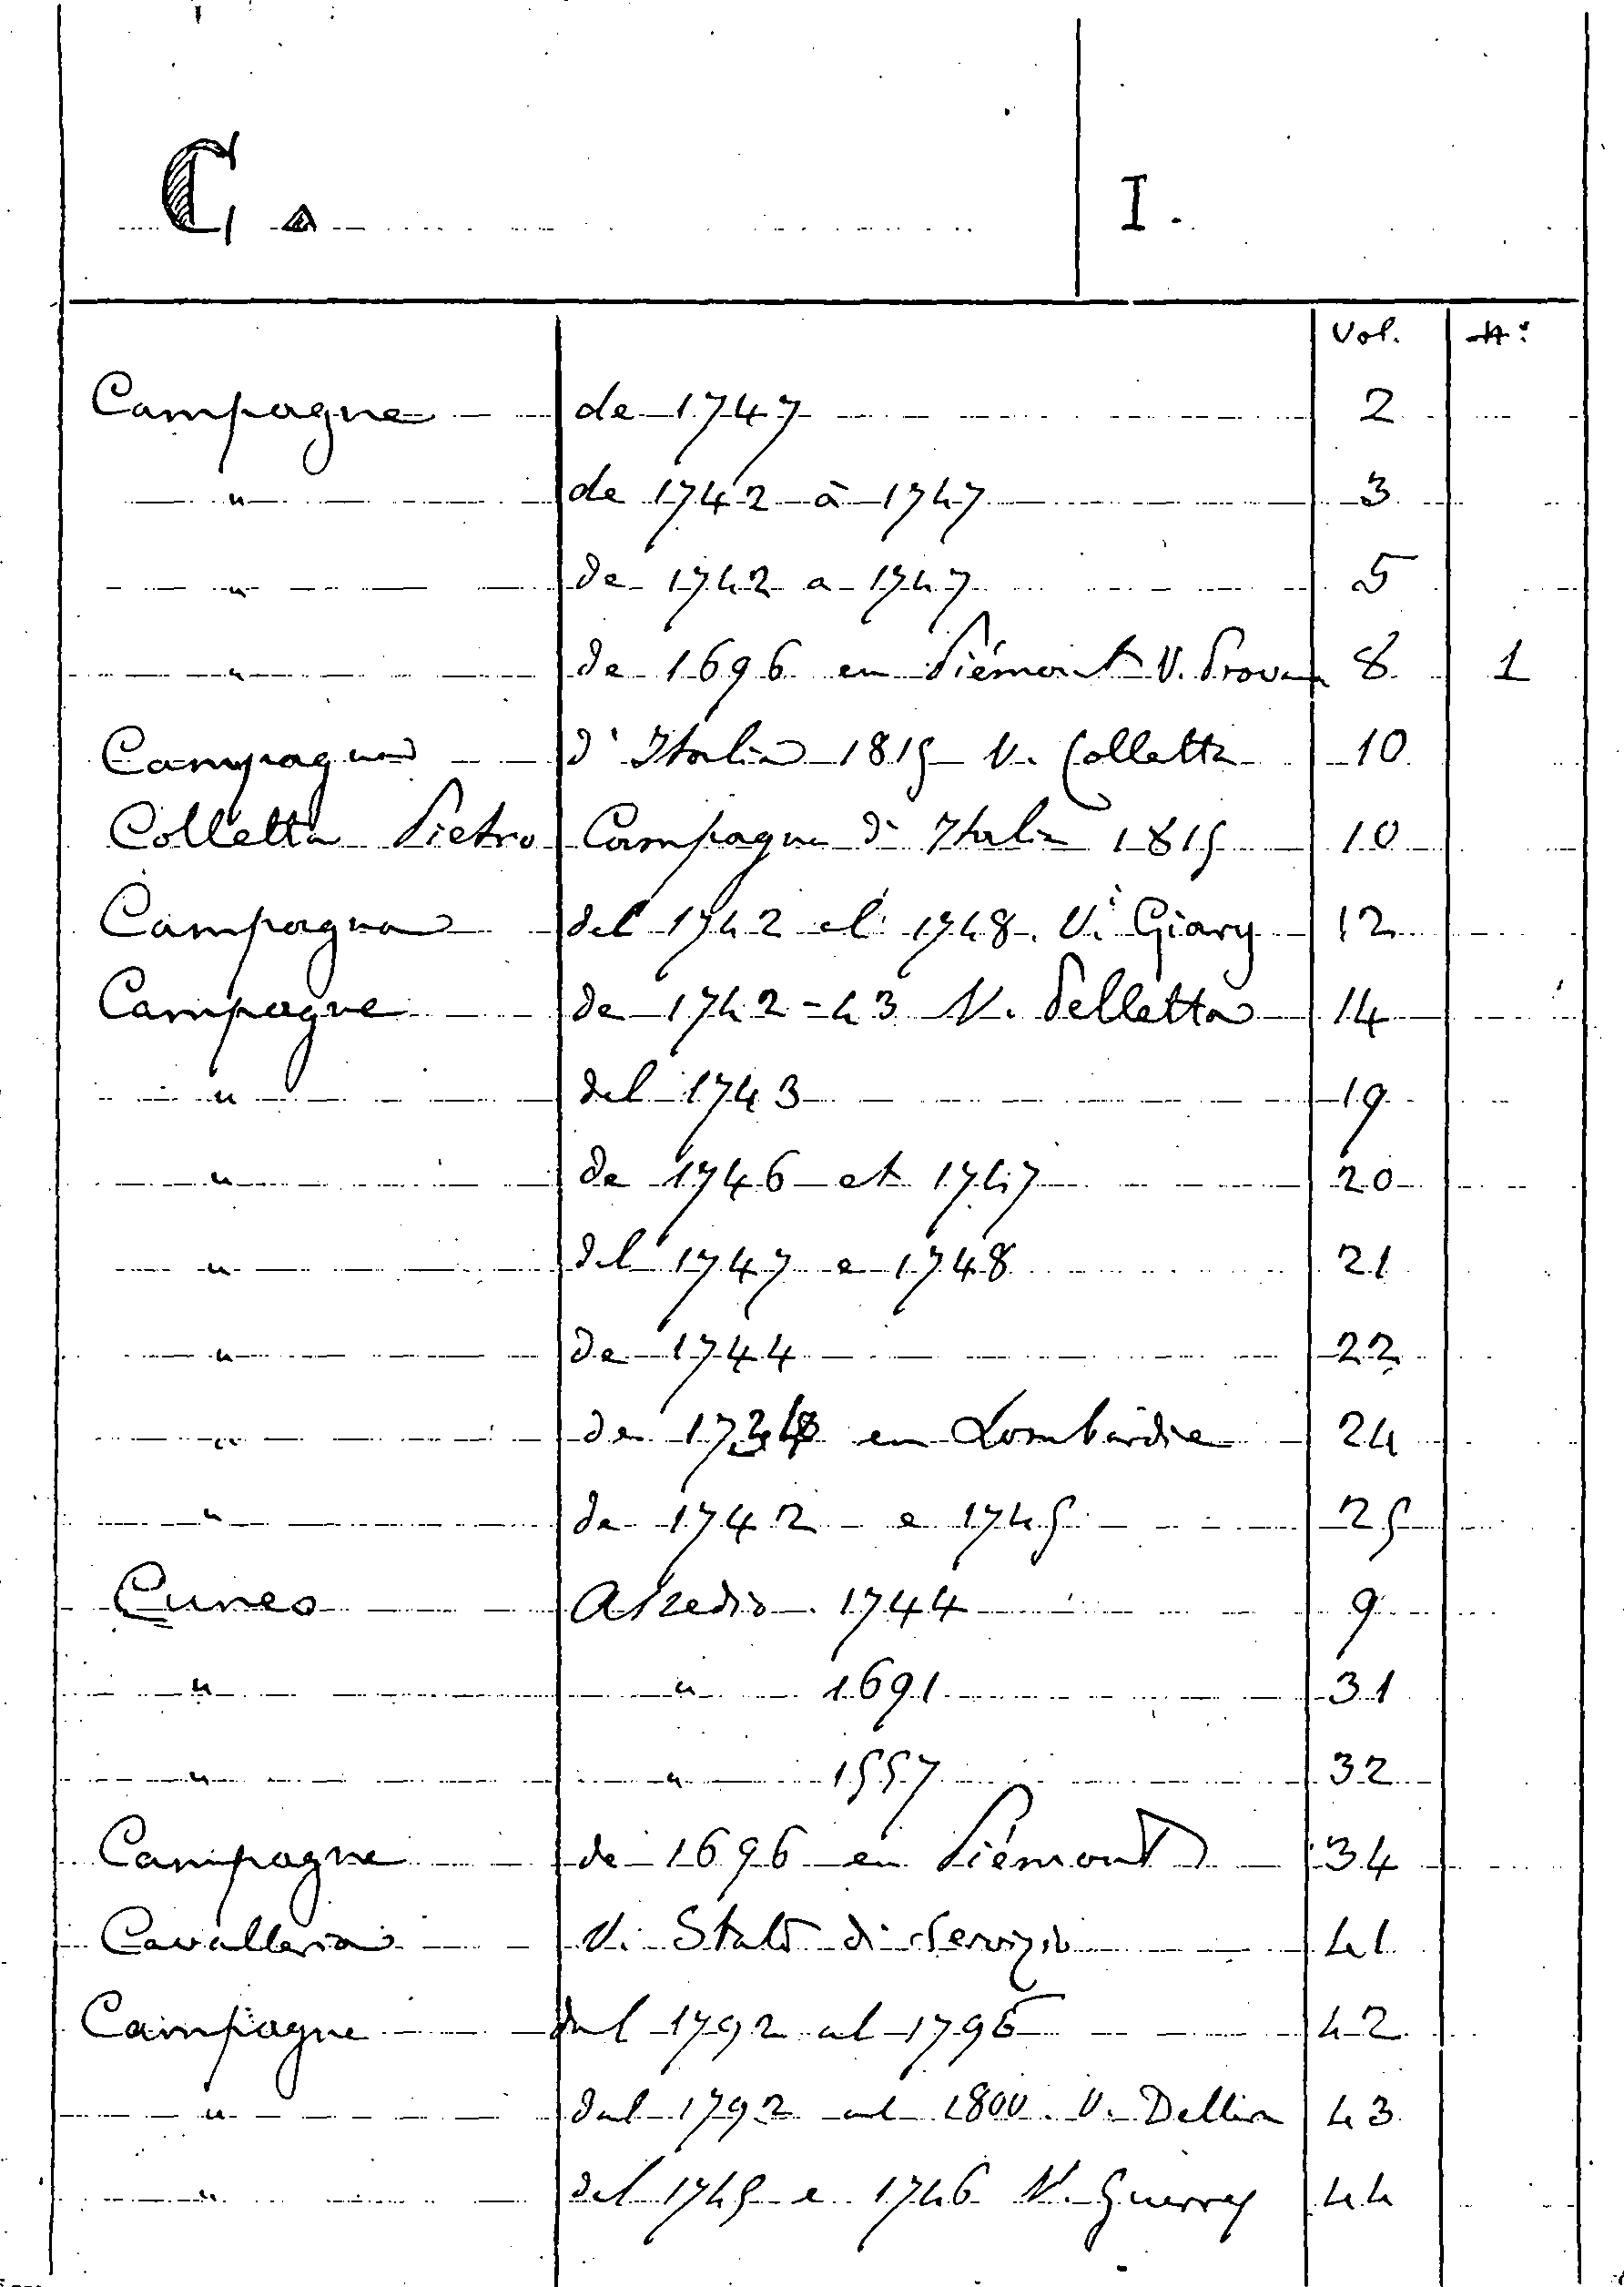 C. I.
Vol. N:
Campagne de 1747 2
" de 1742 à 1747 3
" de 1742 a 1747 5
" de 1696 en Piémont V. Provan 8 1
Campagna d'Italia 1815 V. Colletta 10
Colletta Pietro Campagna d'Italia 1815 10
Campagna del 1742 al 1748. V. Giary 12
Campagne de 1742=43 V. Pelletta 14
" del 1743 19
" de 1746 et 1747 20
" del 1747 e 1748 21
" de 1744 22
" de en Lombardie 24
" de 1742 e 1745 25
Cuneo Assedio 1744 9
" " 1691 31
" " 1557 32
Campagne de 1696 en Piémont 34
Cavalleria V. Stato di Servizio 41
Campagne dal 1792 al 1796 42
" dal 1792 al 1800. V. Dellera 43
" del 1745 e 1746 V. Guerre 44